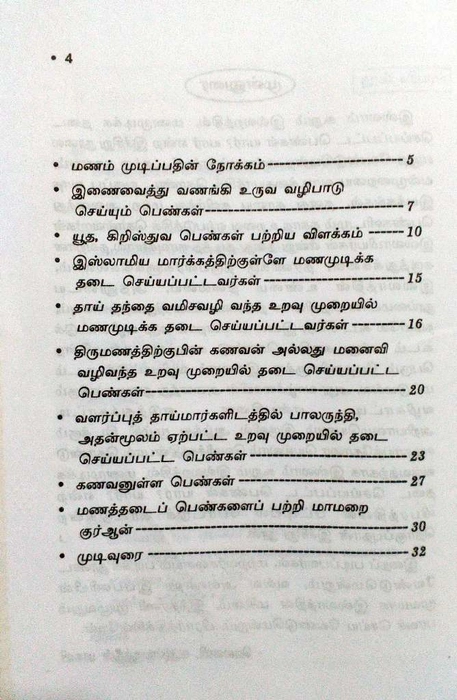 • 4
• மணம் முடிப்பதின் நோக்கம்-------------------5
• இணைவைத்து வணங்கி உருவ வழிபாடு
செய்யும் பெண்கள்----------------------------7
• யூத, கிறிஸ்துவ பெண்கள் பற்றிய விளக்கம்----10
• இஸ்லாமிய மார்க்கத்திற்குள்ளே மணமுடிக்க
தடை செய்யப்பட்டவர்கள்---------------------15
• தாய் தந்தை வமிசவழி வந்த உறவு முறையில்
மணமுடிக்க தடை செய்யப்பட்டவர்கள்--------16
• திருமணத்திற்குபின் கணவன் அல்லது மனைவி
வழிவந்த உறவு முறையில் தடை செய்யப்பட்ட
பெண்கள்-------------------------------------20
• வளர்ப்புத் தாய்மார்களிடத்தில் பாலருந்தி,
அதன்மூலம் ஏற்பட்ட உறவு முறையில் தடை
செய்யப்பட்ட பெண்கள்----------------------23
• கணவனுள்ள பெண்கள்------------------------27
• மணத்தடைப் பெண்களைப் பற்றி மாமறை
குர்ஆன்--------------------------------------30
• முடிவுரை-------------------------------------32